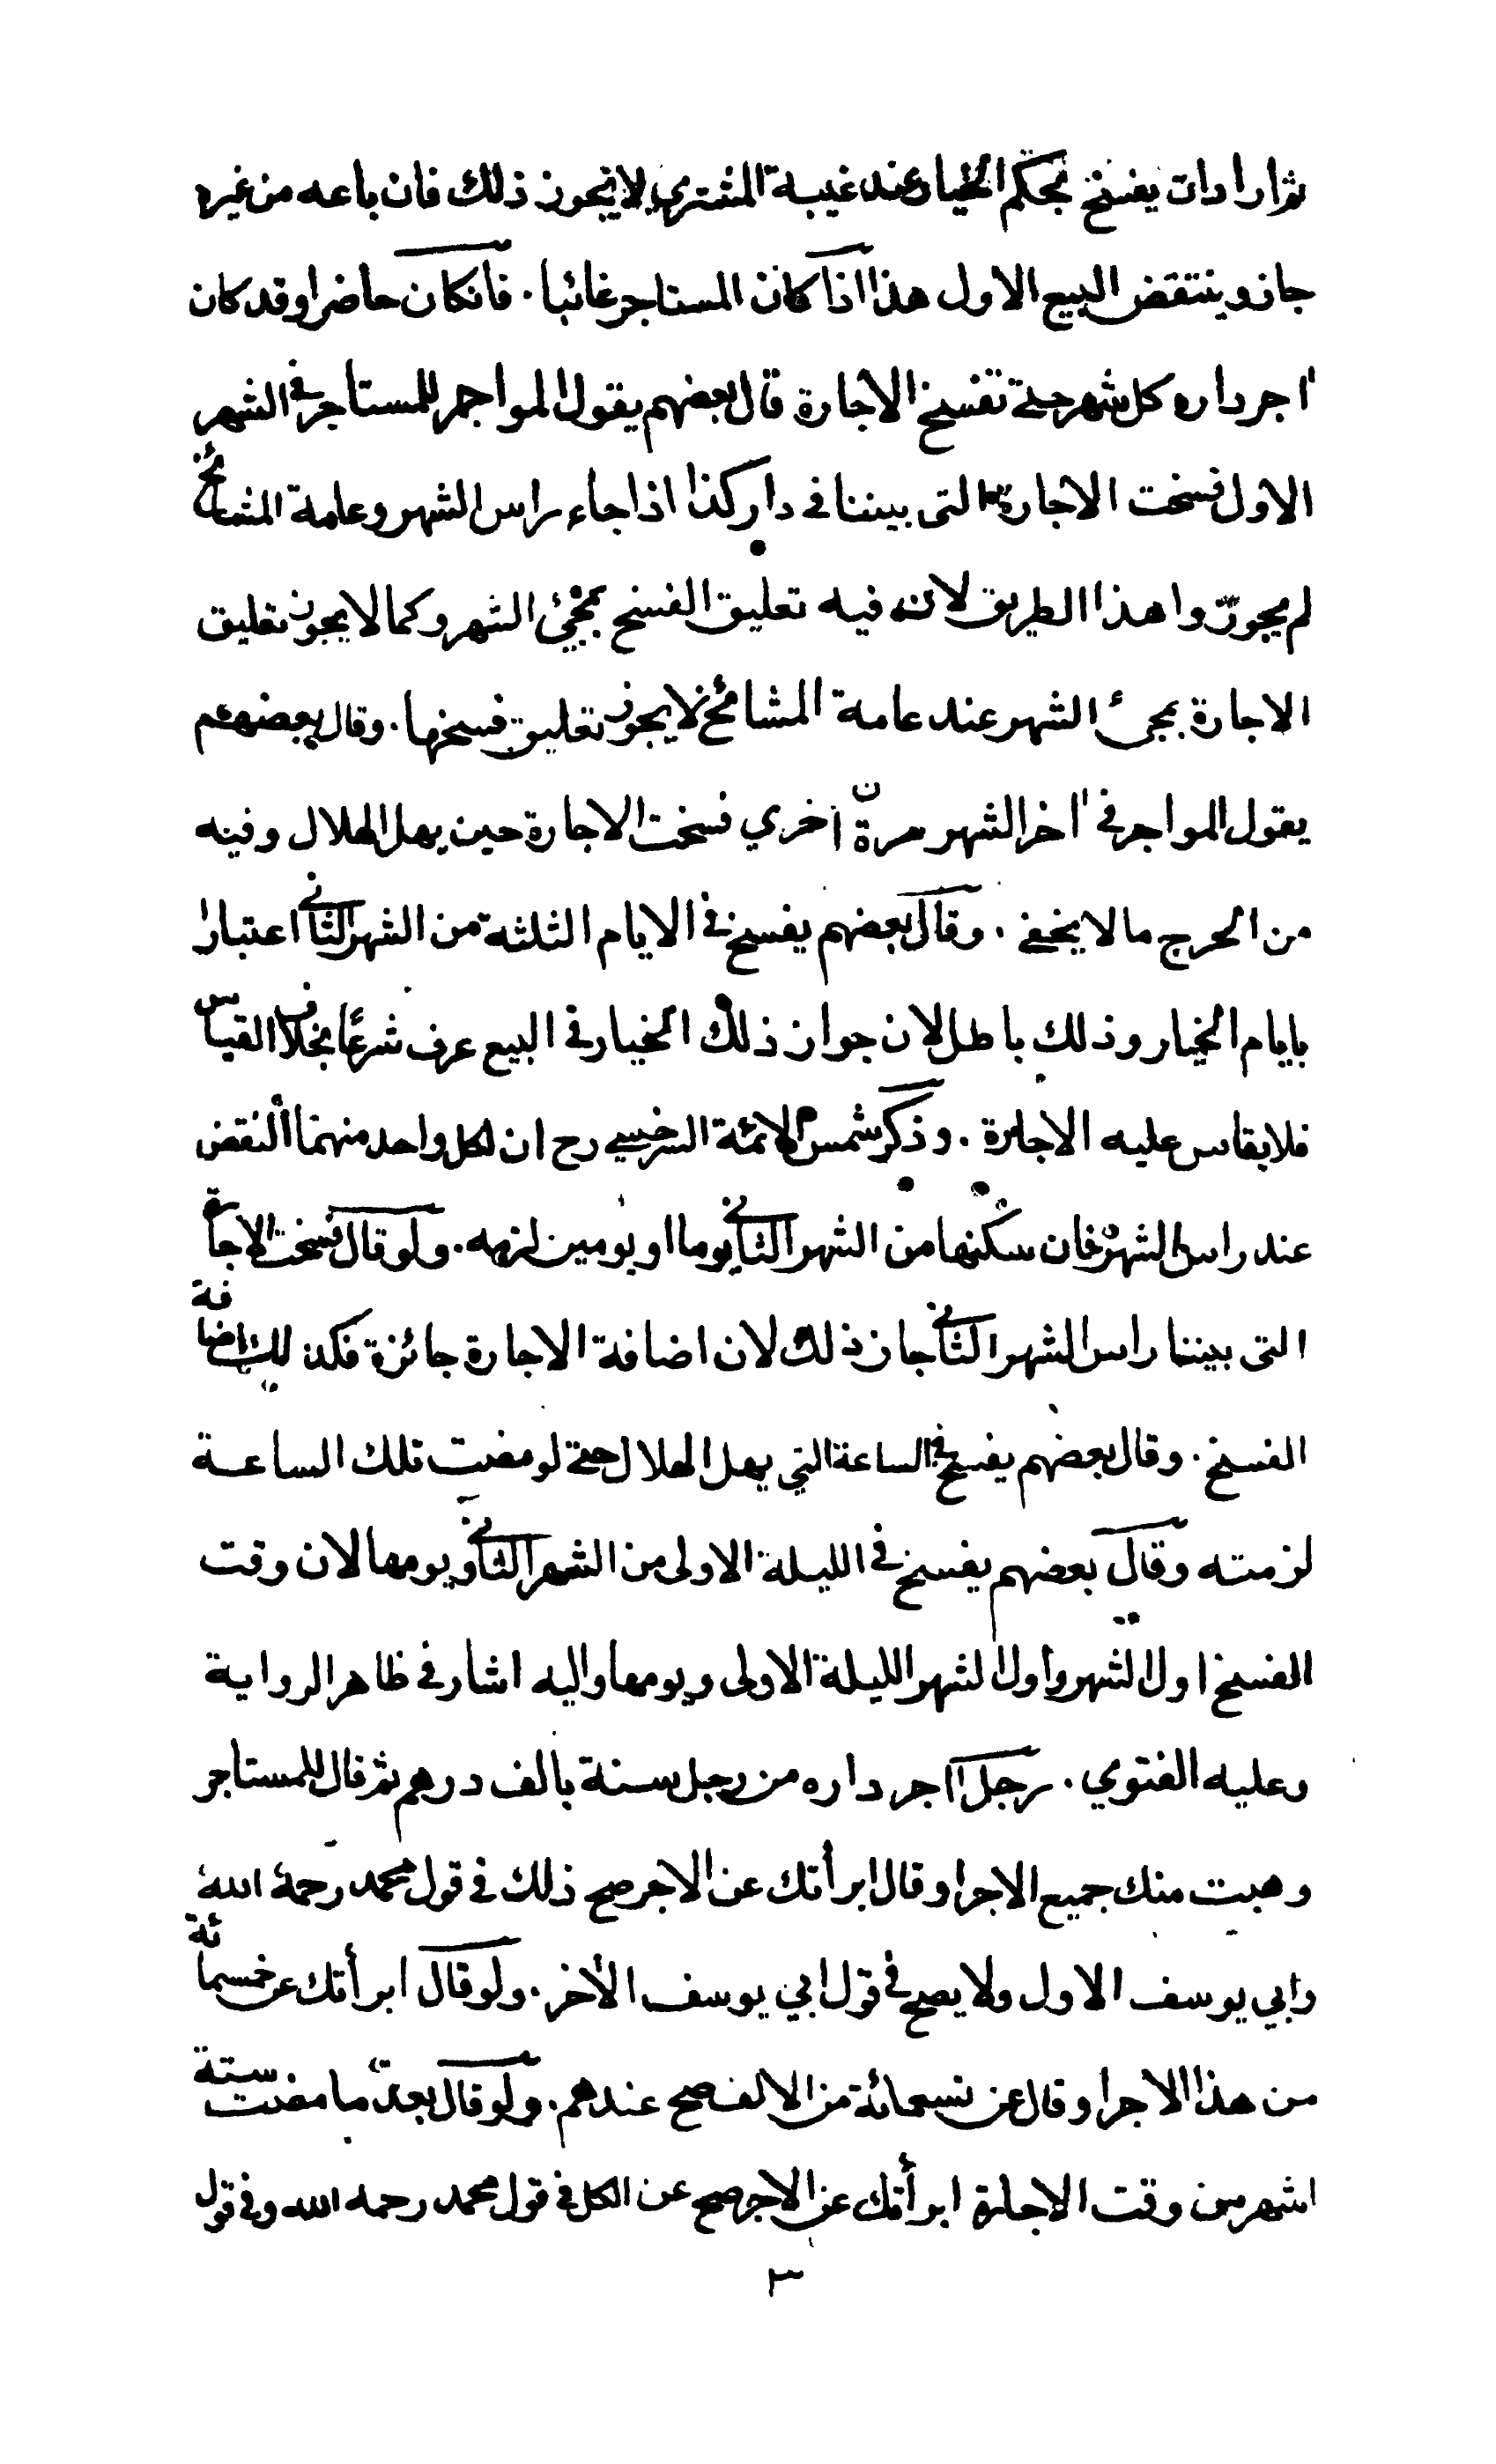 ثم اراد ان يفسخ بحكم الخيار عند غيبة المشتري لا يجوز ذلك فان باعه من غيره
جاز وينتقض البيع الاول هذا اذا كان المستاجر غائبا . فانكان حاضرا وقد كان
اجر داره كل شهر حتى تفسخ الاجارة قال بعضهم يقول المواجر للمستاجر في الشهر
الاول فسخت الاجارة التى بيننا في دار كذا اذا جاء راس الشهر وعامة المشائخ
لم يجوّزوا هذا الطريق لان فيه تعليق الفسخ بمجئ الشهر وكما لا يجوز تعليق
الاجارة بمجئ الشهر عند عامة المشائخ لا يجوز تعليق فسخها . وقال بعضهم
يقول المواجر في اخر الشهر مرة اخري فسخت الاجارة حين يهل الهلال وفيه
من الحرج ما لا يخفى . وقال بعضهم يفسخ في الايام الثلثة من الشهر الثاني اعتبارا
بايام الخيار وذلك باطل لان جواز ذلك الخيار في البيع عرف شرعًا بخلاف القياس
فلا يقاس عليه الاجارة . وذكر شمس الائمة السرخسي رح ان لكل واحد منهما النقض
عند راس الشهر فان سكنها من الشهر الثاني يوما او يومين لزمه . ولو قال فسخت الاجارة
التى بيننا راس الشهر الثاني جاز ذلك لان اضافة الاجارة جائزة فكذلك اضافة
الفسخ . وقال بعضهم يفسخ في الساعة التي يهل الهلال حتى لو مضت تلك الساعة
لزمته وقال بعضهم يفسخ في الليلة الاولى من الشهر الثاني ويومها لان وقت
الفسخ اول الشهر واول الشهر الليلة الاولى ويومها واليه اشار في ظاهر الرواية
وعليه الفتوي . رجل اجر داره من رجل سنة بالف درهم ثم قال للمستاجر
وهبت منك جميع الاجر او قال ابرأتك عن الاجر صح ذلك في قول محمد رحمة الله
وابي يوسف الاول ولا يصح في قول ابي يوسف الاخر . ولو قال ابرأتك عن خمسمائة
من هذا الاجر او قال عن تسعمائة من الالف صح عندهم . ولو قال بعد ما مضت ستة
اشهر من وقت الاجارة ابرأتك عن الاجر صح عن الكل في قول محمد رحمه الله وفي قول
٣